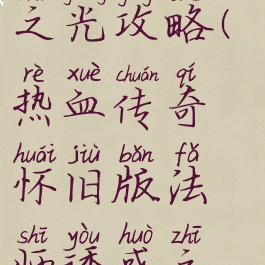 之光攻略(
rè xuè chuán qí
热血传奇
huái jiù bǎn fǎ
怀旧版法
shī yòu huò zhī
师诱惑之